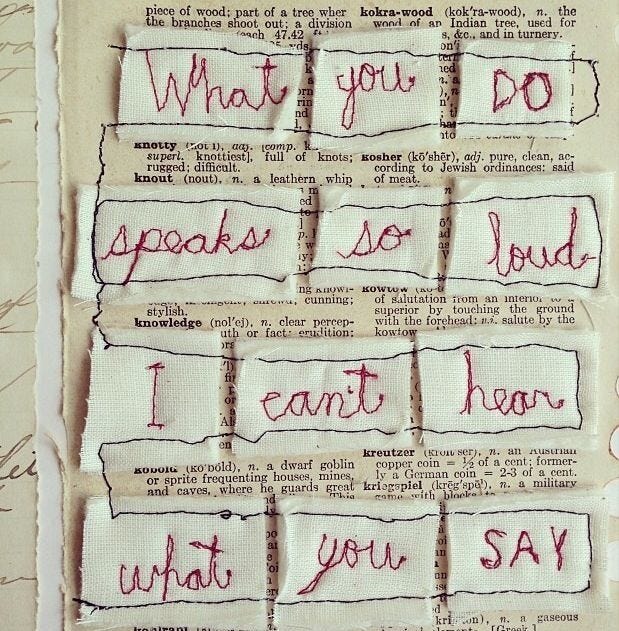 piece of word; part of a tree wher
the branches shoot out; a division
each 47.42
kokra-wood (kok'ra-wood), n. the
wood of an Indian tree, used for
s, &c., and in turnery.
What you DO
knotty
superl. knottiest], full of knots;
rugged; difficult.
knout (nout), n. a leathern whip
kosher (kō'shẽr), adj. pure, clean, ac-
cording to Jewish ordinances: said
of meat.
speaks so loud
cunning;
stylish.
knowledge (nol'ej), n. clear percep-
uth or fact; erudition;
kowtow
of salutation from an inferior to a
superior by touching the ground
with the forehead: v.i. salute by the
kowtow
I can't hear
kobold (kō'bōld), n. a dwarf goblin
or sprite frequenting houses, mines,
and caves, where he guards great
This
kreutzer n. an Austrian
copper coin = ½ of a cent; former-
ly a German coin = 2-3 of a cent.
kriegspiel (krēg'spēl), n. a military
game with blocks
what you SAY
n. a gaseous
[Greek.]